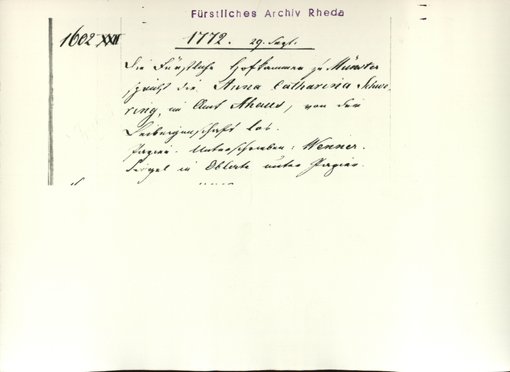 Fürstliches Archiv Rheda
1602 XXII
1772. 29. Sept.
Die Fürstliche Hofkammer zu Münster
spricht die Anna Catharina Schwe-
ring, im Amt Ahaus, von der
Leibeigenschaft los.
Papier. Unterschrieben: Wenner.
Siegel in Oblate unter Papier.